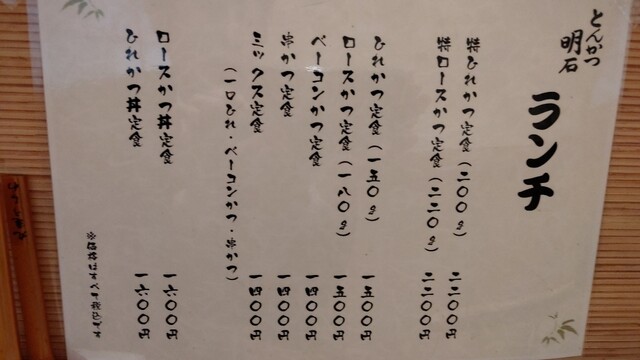 とんかつ
明石
ランチ
特ひれかつ定食(二〇〇g) 二二〇〇円
特ロースかつ定食(二二〇g) 二二〇〇円
ひれかつ定食(一五〇g) 一五〇〇円
ロースかつ定食(一八〇g) 一五〇〇円
ベーコンかつ定食 一四〇〇円
串かつ定食 一四〇〇円
ミックス定食 一四〇〇円
(一口ひれ・ベーコンかつ・串かつ)
ロースかつ丼定食 一六〇〇円
ひれかつ丼定食 一六〇〇円
※価格はすべて税込です